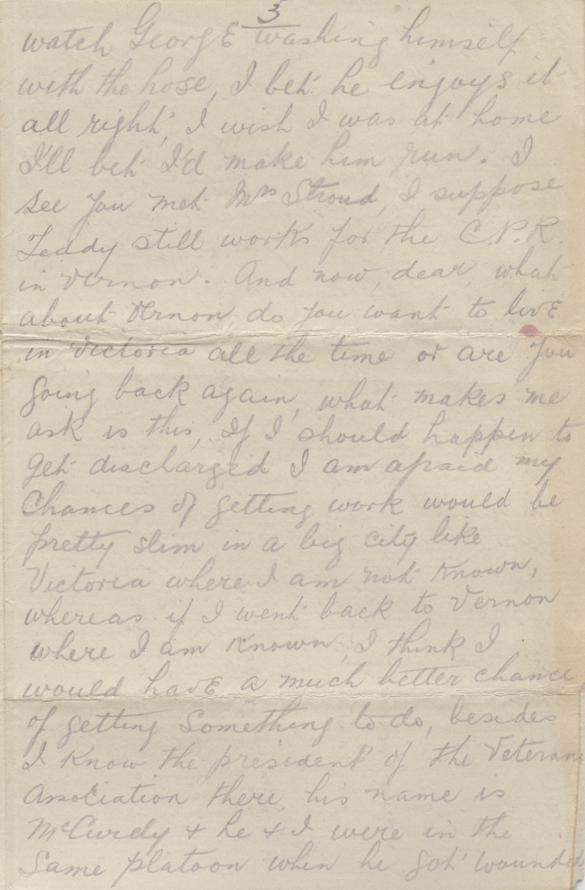 3
watch George washing himself
with the hose, I bet he enjoys it
all right, I wish I was at home
I'll bet I'd make him run. I
see you met Mrs Stroud, I suppose
Teddy still works for the C.P.R.
in Vernon. And now, dear, what
about Vernon do you want to live
in Victoria all the time or are you
going back again, what makes me
ask is this, If I should happen to
get discharged I am afraid my
chances of getting work would be
pretty slim in a big city like
Victoria where I am not known,
whereas if I went back to Vernon
where I am known, I think I
would have a much better chance
of getting something to do, besides
I know the president of the Veterans
Association there, his name is
McCurdy & he & I were in the
same platoon when he got wounded